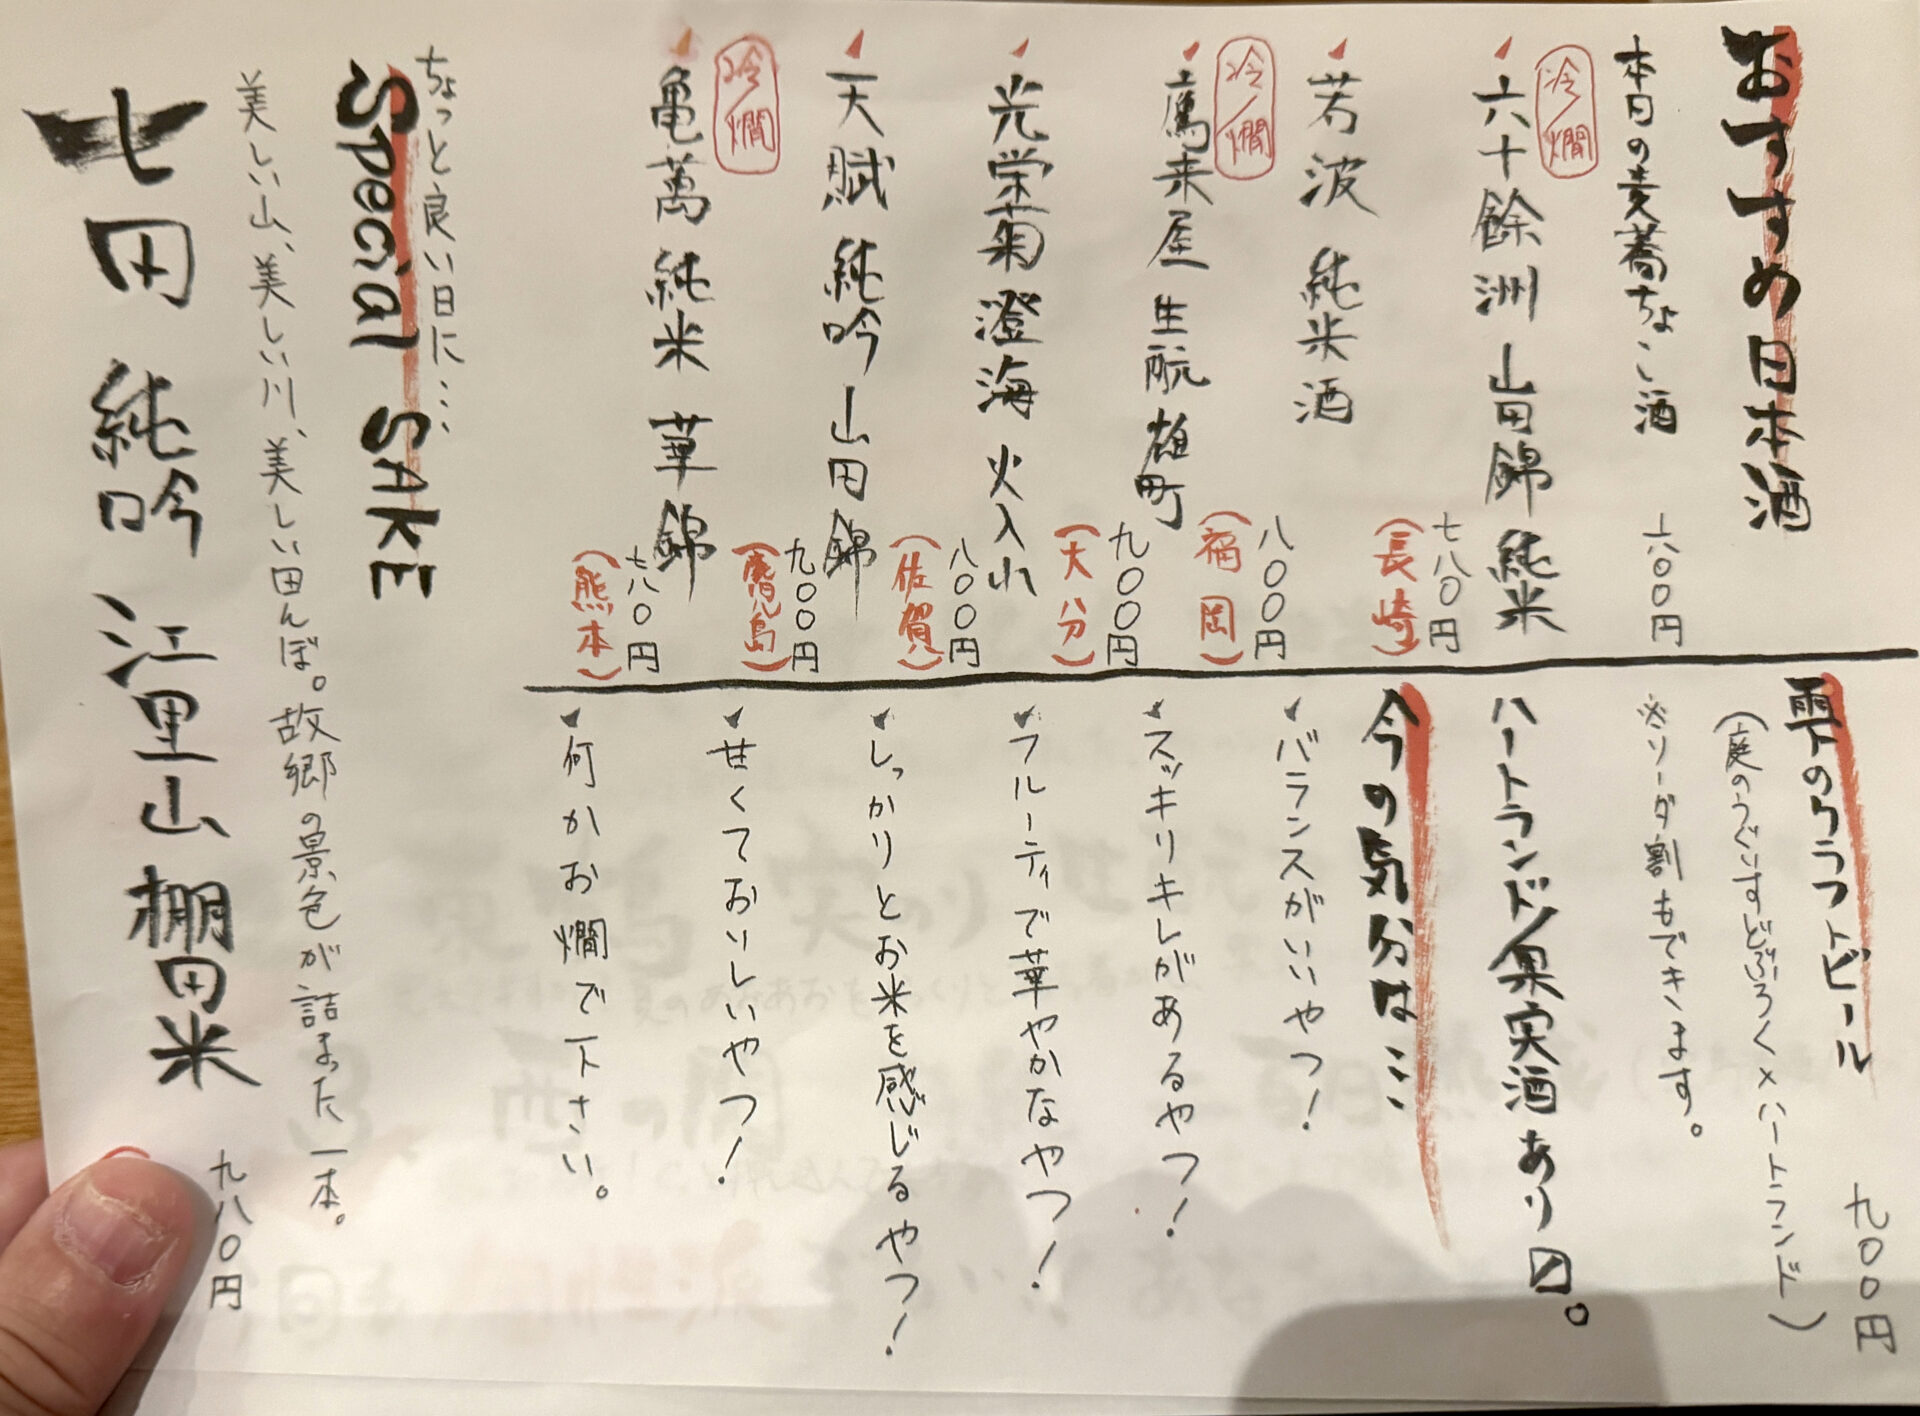 おすすめ日本酒
本日の麦蕎ちょこ酒 六〇〇円
冷/燗
六十餘洲 山田錦 純米 七八〇円
(長崎)
若波 純米酒 八〇〇円
(福岡)
冷/燗
鷹来屋 生酛 雄町 九〇〇円
(大分)
光栄菊 澄海 火入れ 八〇〇円
(佐賀)
天賦 純吟 山田錦 九〇〇円
(鹿児島)
冷/燗
亀萬 純米 華錦 七八〇円
(熊本)
雫のクラフトビール 九〇〇円
(庭のうぐいすどぶろく×ハートランド)
※ソーダ割もできます。
ハートランド/果実酒あり〼。
今の気分はここ
バランスがいいやつ!
スッキリキレがあるやつ!
フルーティで華やかなやつ!
しっかりとお米を感じるやつ!
甘くておいしいやつ!
何かお燗で下さい。
ちょっと良い日に…
Special SAKE
美しい山、美しい川、美しい田んぼ。故郷の景色が詰まった一本。
七田 純吟 江里山 棚田米 九八〇円